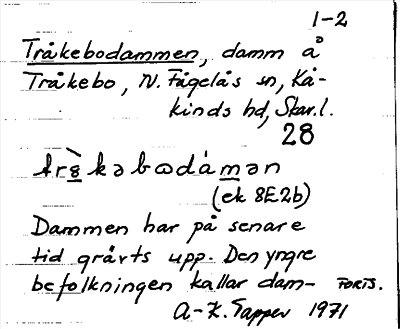 1-2
Tråkebodammen, damm å
Tråkebo, N. Fågelås sn, Kå-
kinds hd, Skar. l.
28
kəbωdámən
(ek 8E2b)
Dammen har på senare
tid grävts upp. Den yngre
befolkningen kallar dam- FORTS.
A-K. Tapper 1971